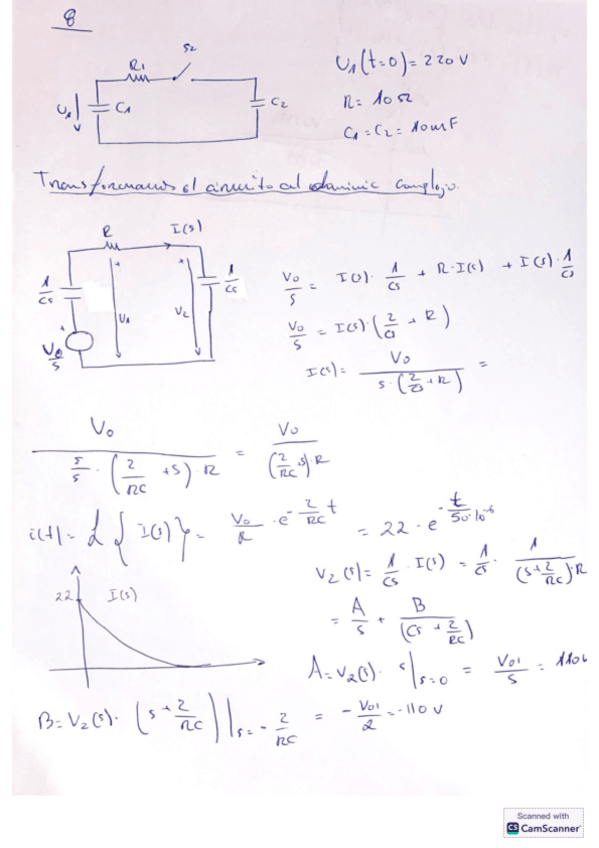 8
S2
R1
U1(t=0) = 220 V
U1
C1
C2
R = 10 Ω
C1 = C2 = 10 µF
Transformamos el circuito al dominio complejo.
R
I(s)
1/Cs
1/Cs
U1
V2
V0/s
V0/s = I(s) · 1/Cs + R · I(s) + I(s) · 1/Cs
V0/s = I(s) · (2/Cs + R)
I(s) = V0 / (s · (2/Cs + R)) =
V0 / (s/s · (2/RC + s) · R) = V0 / ((2/RC + s) · R)
i(t) = L { I(s) } = V0/R · e^(-2/RC t) = 22 · e^(-t/50·10^-6)
V2(s) = 1/Cs · I(s) = 1/Cs · 1/((s + 2/RC) · R)
22
I(s)
= A/s + B/(Cs + 2/RC)
A = V2(s) · s |s=0 = V01/s = 110 V
B = V2(s) · (s + 2/RC) |s = -2/RC = -V01/2 = -110 V
Scanned with
CS CamScanner